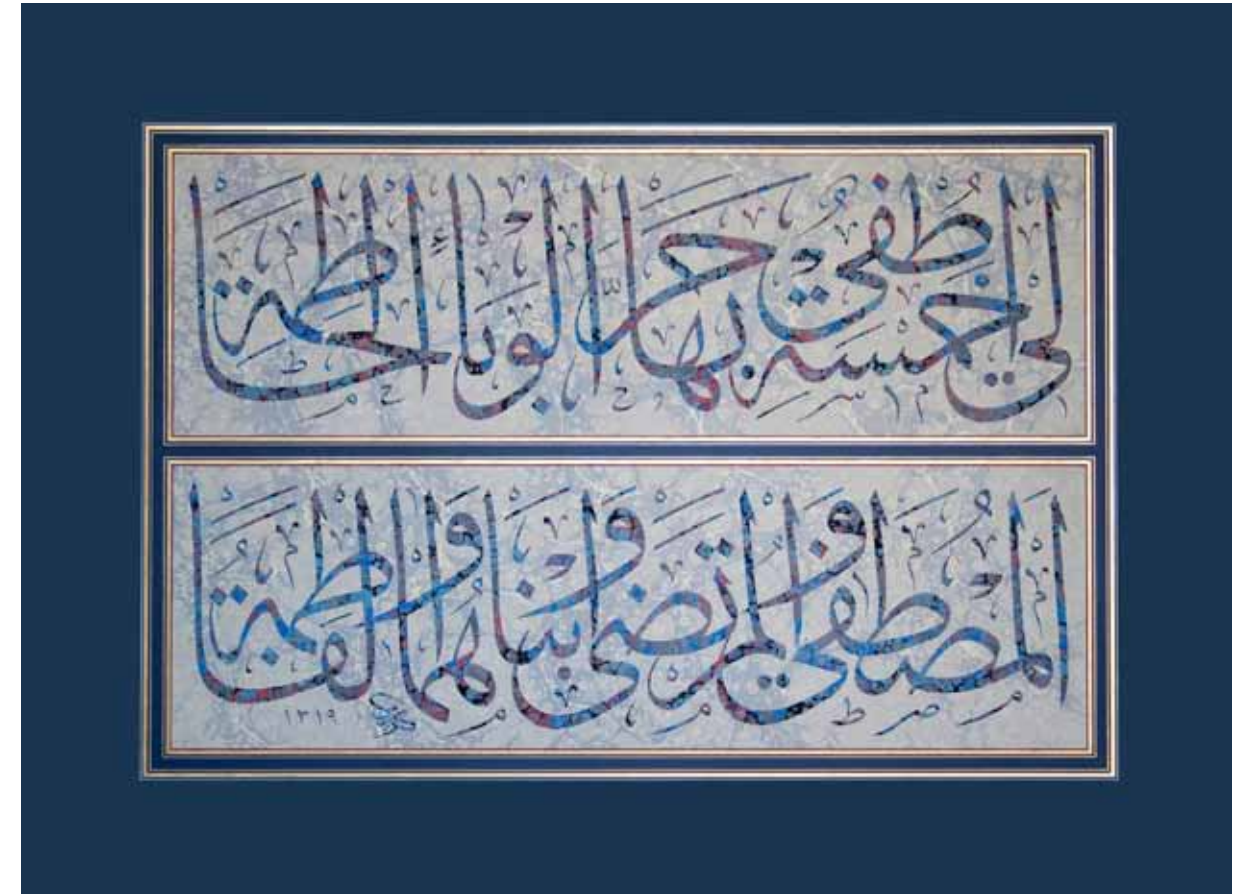 لي خمسة اطفي بها حر الوباء الحاطمة
المصطفى والمرتضى وابناهما والفاطمة
١٣١٩